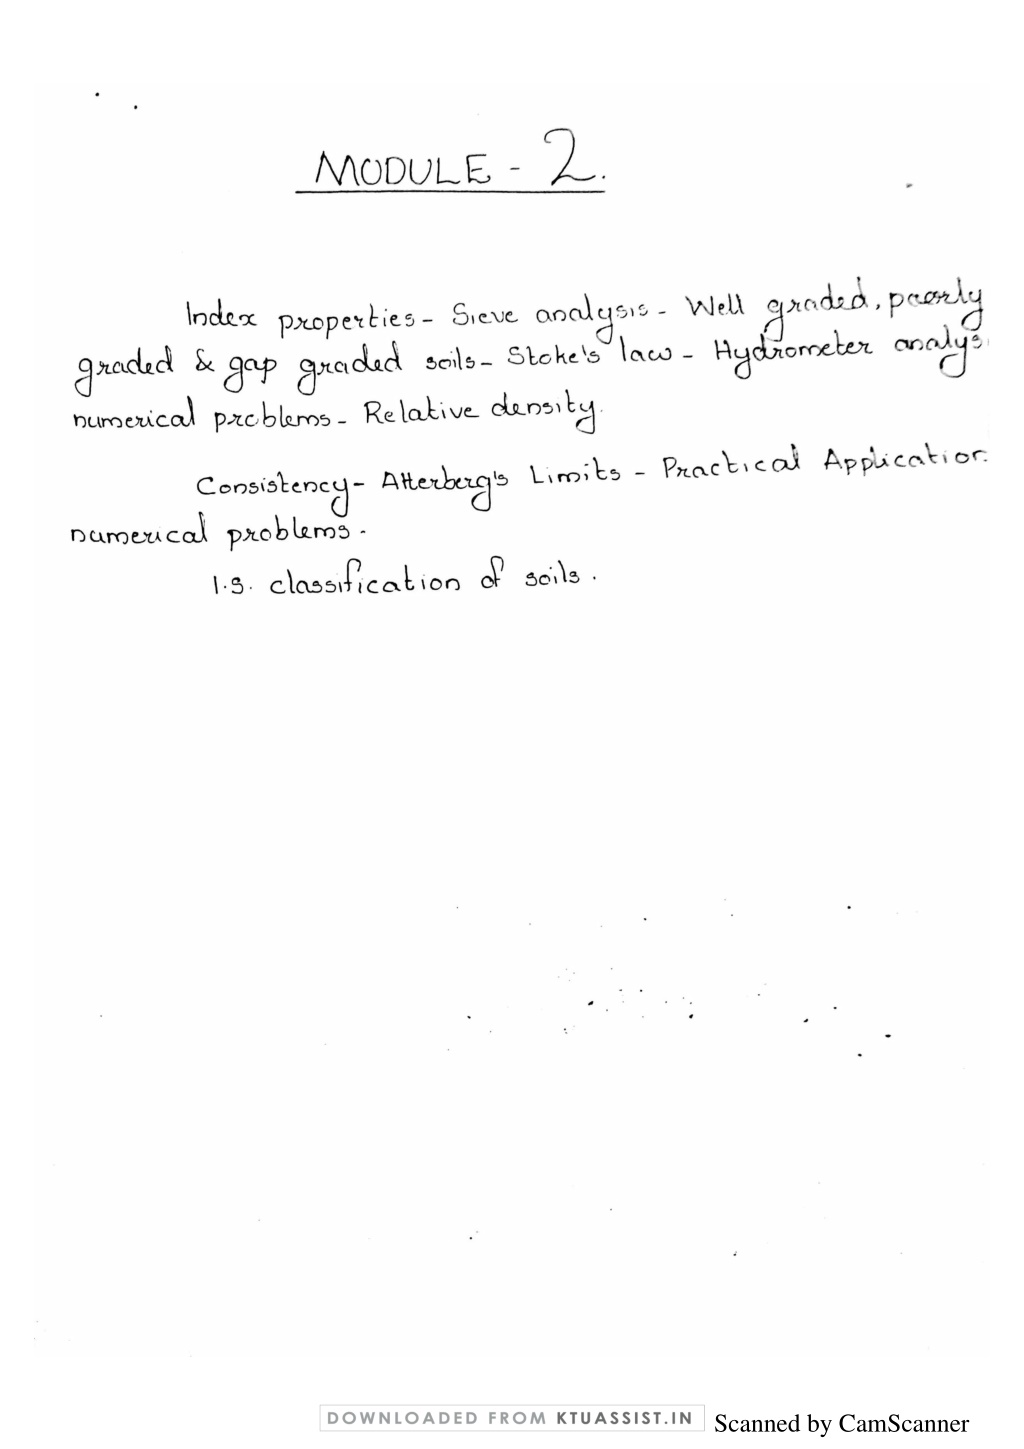 MODULE - 2.
Index properties - Sieve analysis - Well graded, poorly
graded & gap graded soils - Stoke's law - Hydrometer analys
numerical problems - Relative density.
Consistency - Atterberg's Limits - Practical Application
numerical problems.
I.S. classification of soils.
DOWNLOADED FROM KTUASSIST.IN
Scanned by CamScanner